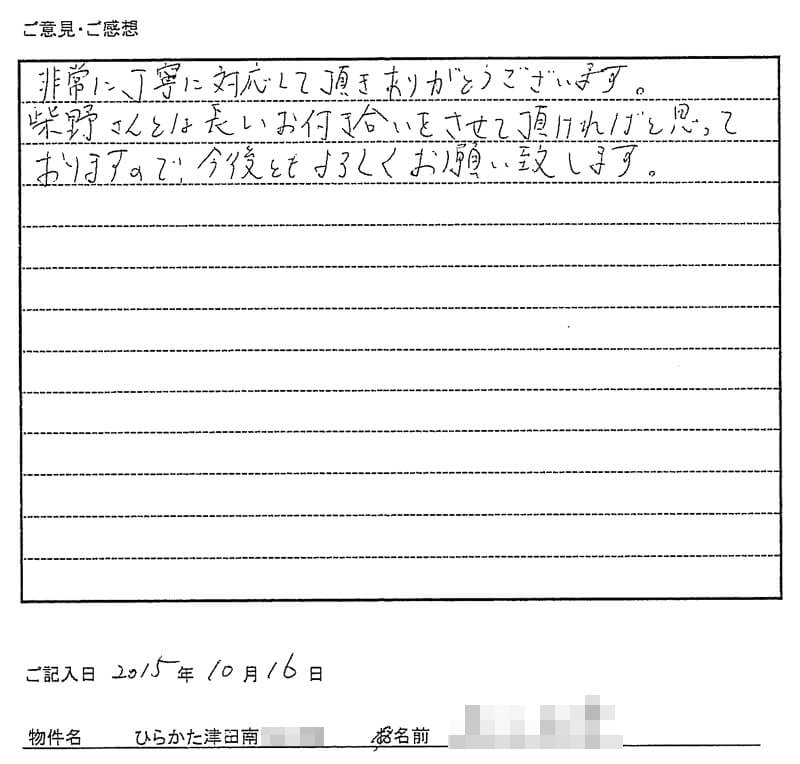 ご意見・ご感想
非常に丁寧に対応して頂きありがとうございます。
柴野さんとは長いお付き合いをさせて頂ければと思って
おりますので、今後ともよろしくお願い致します。
ご記入日 2015年 10月16日
物件名 ひらかた津田南 お名前